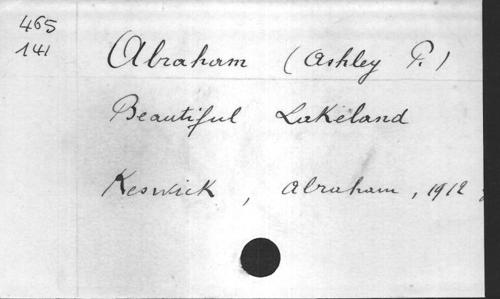 465
141
Abraham (Ashley P.)
Beautiful Lakeland
Keswick, Abraham, 1912